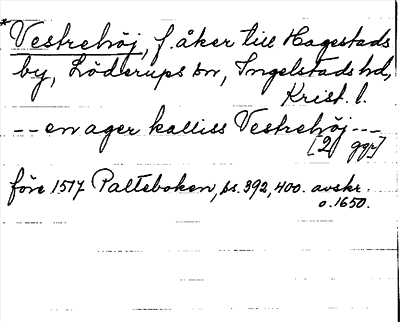 *Vestrehöj, f. åker till Hagestads
by, Löderups sn, Ingelstads hd,
Krist. l.
-- en ager kalliss Vestrehöj ---
[2 ggr]
före 1517 Palteboken, ss. 392, 400. avskr.
o. 1650.